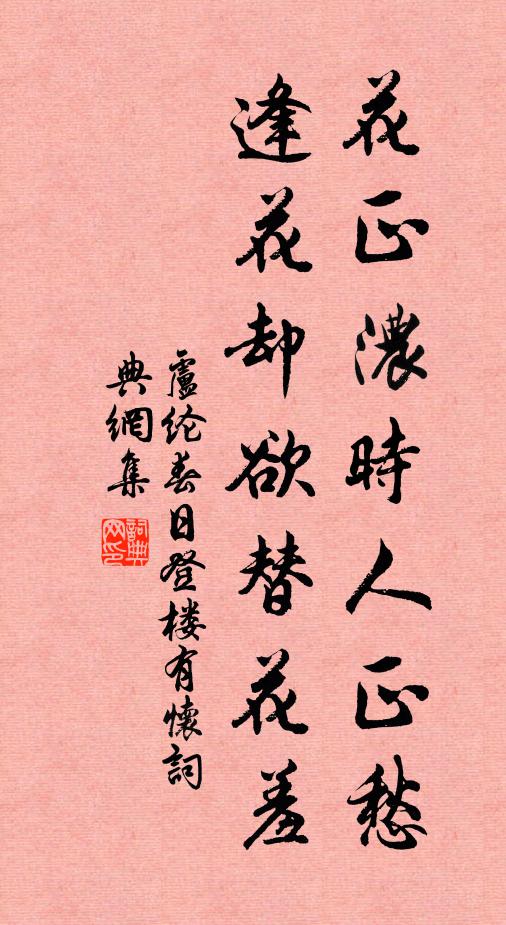 花正濃時人正愁
逢花却欲替花羞
盧纶春日登楼有懷詞
典網集
詞典
网印